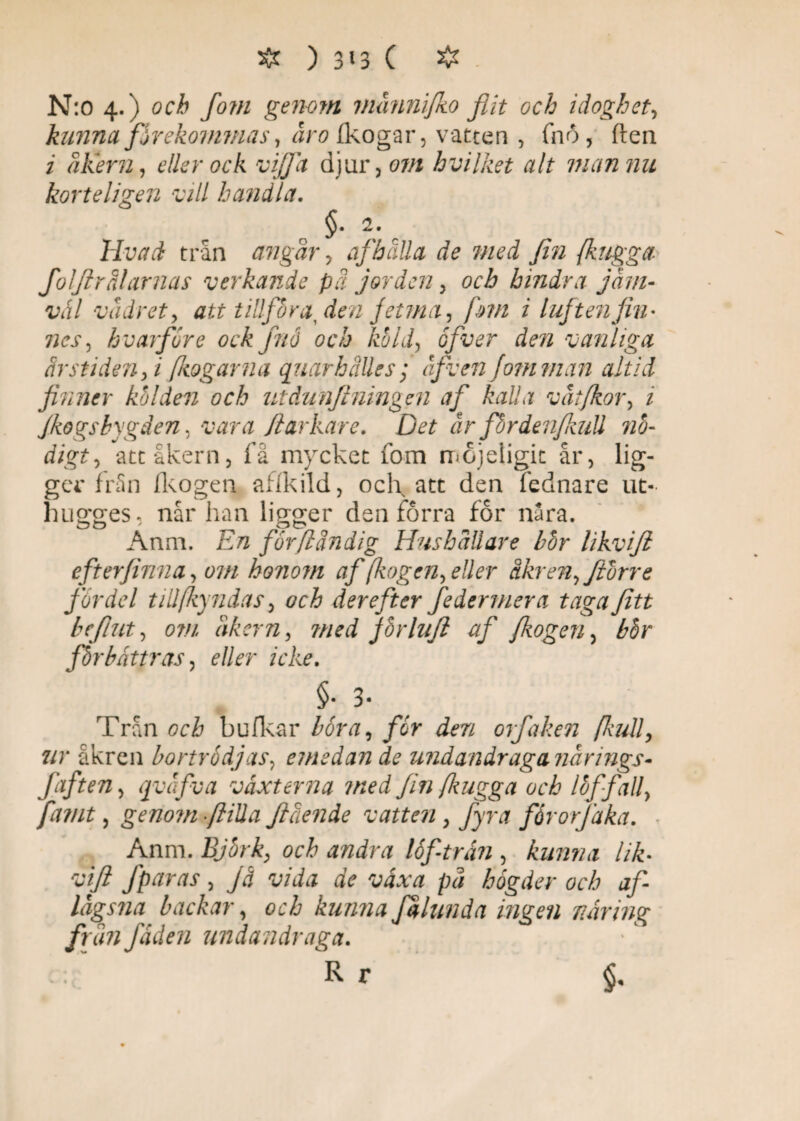 ☼ ) 313 ( ☼
N:o 4.) och ſom genom människo flit och idoghet,
kunna förekommas, äro ſkogar, vatten, ſnö, ſten
i åkern, eller ock viſſa djur, om hvilket alt man nu
korteligen vill handla.
§. 2.
Hvad trän angår, afhålla de med ſin ſkugga
ſolſtrålarnas verkande på jorden, och hindra jäm-
väl vädret, att tillföra den fetma, ſom i luften fin-
nes, hvarföre ock ſnö och köld, öfver den vanliga
årstiden, i ſkogarna quarhålles; äfven ſom man altid
finner kölden och utdunſtningen af kalla våtſkor, i
ſkogsbygden, vara ſtarkare. Det är fördenſkull nö-
digt, att åkern, få mycket ſom möjeligit är, lig-
ger från ſkogen afſkild, och att den ſednare ut-
hugges, när han ligger den förra för nära.
Anm. En förſtåndig Hushållare bör likviſt
efterfinna, om honom af ſkogen, eller åkren, ſtörre
fördel tillſkyndas, och derefter ſedermera taga ſitt
beſlut, om åkern, med förluſt af ſkogen, bör
förbättras, eller icke.
§. 3.
Trän och buſkar böra, för den orſaken ſkull,
ur åkren bortrödjas, emedan de undandraga närings-
ſaften, qväfva växterna med ſin ſkugga och löffall,
ſamt, genom ſtilla ſtående vatten, ſyra förorſaka.
Anm. Björk, och andra löf-trän, kunna lik-
viſt ſparas, ſå vida de växa på högder och af-
lägsna backar, och kunna ſålunda ingen näring
från ſäden undandraga.
R r §.